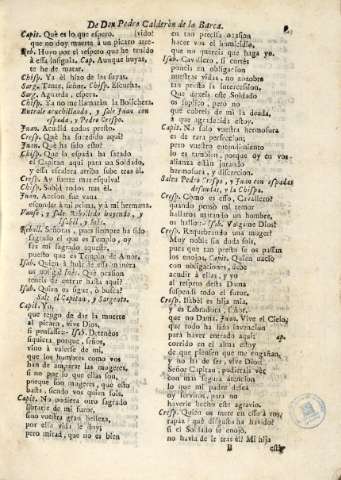 De Don Pedro Calderòn de la Barca.
Capit. Què es lo que espero. (vido!
que no doy muerte à un picaro atre-
Reb. Huyo por el respeto que he traìdo
à essa insignia. Cap. Aunque huyas,
te he de matar.
Chisp. Ya èl hizo de las suyas.
Sarg. Tente, señor. Chisp. Escucha.
Sarg. Aguarda, espera.
Chisp. Ya no me llamaràn la Bolichera.
Entrale acuchillando, y sale Juan con
espada, y Pedro Crespo.
Juan. Acudid todos presto.
Cresp. Què ha sucedido aqui?
Juan. Què ha sido esto?
Chisp. Que la espada ha sacado
el Capitan aqui para un Soldado,
y essa escalera arriba sube tras èl.
Cresp. Ay suerte mas esquiva!
Chisp. Subid todos tras èl.
Juan. Accion fue vana
esconder à mi prima, y à mi hermana.
Vanse, y sale Rebolledo huyendo, y
Isabèl, y Inès.
Reboll. Señoras, pues siempre ha sido
sagrado el que es Templo, oy
sea mi sagrado aqueste,
puesto que es Templo de Amor.
Isab. Quien à huir de essa manera
os obliga? Inès. Què ocasion
teneis de entrar hasta aqui?
Isab. Quien os sigue, ò busca?
Sale el Capitan, y Sargento.
Capit. Yo,
que tengo de dàr la muerte
al picaro, vive Dios,
si pensasse:- Isab. Deteneos
siquiera, porque, señor,
vino à valerse de mì,
que los hombres como vos
han de amparar las mugeres,
si no por lo que ellas son,
porque son mugeres, que esto
basta, siendo vos quien sois.
Capit. No pudiera otro sagrado
librarle de mi furor,
sino vuestra gran belleza,
por ella vida le doy;
pero mirad, que no es bien
en tan precisa ocasion
hacer vos el homicidio,
que no quereis que haga yo.
Isab. Cavallero, si cortès
poneis en obligacion
nuestras vidas, no zozobre
tan presto la intercession.
Que dexeis este Soldado
os suplico, pero no
que cobreis de mì la deuda,
à que agradecida estoy.
Capit. No solo vuestra hermosura
es de rara perfeccion;
pero vuestro entendimiento
lo es tambien, porque oy en vos
alianza estàn jurando
hermosura, y discrecion.
Salen Pedro Crespo, y Juan con espadas
desnudas, y la Chispa.
Cresp. Como es esso, Cavallero?
quando pensò mi temor
hallaros matando un hombre,
os hallo:- Isab. Valgame Dios!
Cresp. Requebrando una muger?
Muy noble sin duda sois,
pues que tan presto se os passan
los enojos. Capit. Quien naciò
con obligaciones, debe
acudir à ellas, y yo
al respeto desta Dama
suspendì todo el furor.
Cresp. Isabèl es hija mia,
y es Labradora, señor,
que no Dama. Juan. Vive el Cielo,
que todo ha sido invencion
para haver entrado aqui! ap.
corrido en el alma estoy
de que piensen que me engañan,
y no ha de ser: Bien, vive Dios!
Señor Capitan, pudierais vèr
con mas segura atencion
lo que mi padre desea
oy serviros, para no
haverle hecho este agravio.
Cresp. Quien os mete en esso à vos,
rapàz? què disgusto ha havido?
si el Soldado se enojò,
no havia de ir tras èl? Mi hija
B